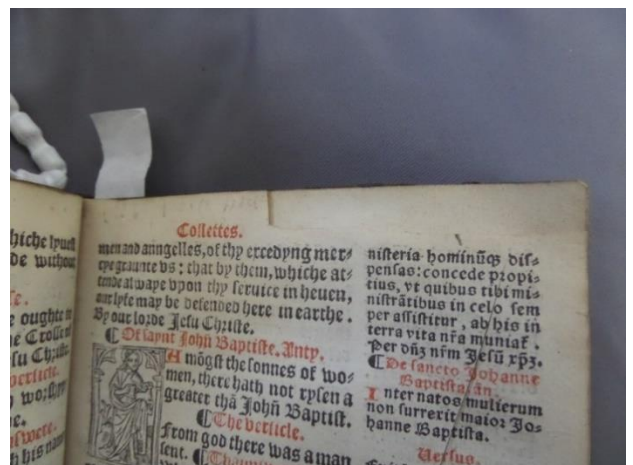 hiche lyuest
de without
e.
e oughte to
e Crosse of
su Christ.
verticle.
worshyp
swere.
h his name
Collettes.
men and anngelles, of thy excedyng mer⸗
cye graunte vs: that by them, whiche at⸗
tende alwaye vpon thy seruice in heuen,
our lyfe may be defended here in earthe.
By our lorde Jesu Christe.
¶ Of saynt John Baptiste. Anty.
Amōgst the sonnes of wo⸗
men, there hath not rysen a
greater thā John Baptist.
¶ The versicle.
From god there was a man
sent.
nisteria hominūq; dis⸗
pensas: concede propi⸗
tius, vt quibus tibi mi⸗
nistrātibus in celo sem
per assistitur, ab his in
terra vita nr̄a muniat̄.
Per dn̄z nr̄m Jesū xp̄z.
¶ De sancto Johanne
Baptista. an.
Inter natos mulierum
non surrexit maior Jo⸗
hanne Baptista.
Versus.